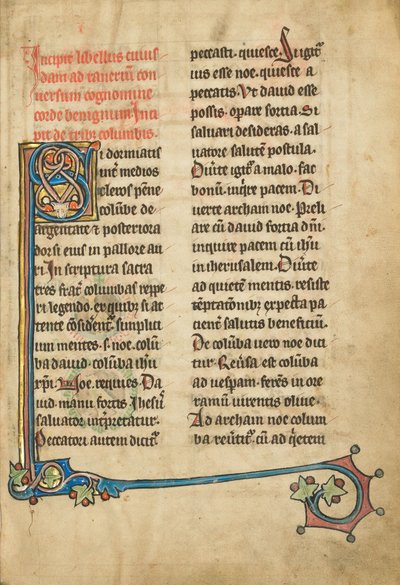 Incipit libellus cuius
dam ad ranerium con
uersum cognomine
corde benignum Inci
pit de tribꝫ columbis.
Si dormiatis
int̃ medios
cleros pẽne
colũbe de
argentate ⁊ posteriora
dorsi eius in pallore au
ri· In scriptura sacra
tres frat̃ columbas reppe
ri legendo· ex quibꝫ si at
tente cõsident̃ simplici
um mentes· s̃· noe· colũ
ba dauid· colũba ihũ
xp̃i· Noe· requies· Da
uid· manu fortis· Ihesus
saluator int̃pretatur·
Peccatori autem dicit̃
peccasti· quiesce· Si igit̃
uis esse noe· quiesce a
peccatis· Vt dauid esse
possis· opare fortia· Si
saluari desideras· a sal
uatore salutẽ postula·
Diũte igit̃ a malo· fac
bonũ· inq̃re pacem· Di
uerte ad archam noe· Preli
are cũ dauid fortia dñi·
inquire pacem cũ ihũ
in iherusalem· Diũte
ad quietẽ mentis· resiste
tẽptationibꝫ· expecta pa
cient̃ salutis beneficiũ·
De colũba uero noe dici
tur· Reũsa est colũba
ad uesꝑam· ferẽs in ore
ramũ uirentis oliue·
Ad archam noe colum
ba reũtit̃· cũ ad q̃etem